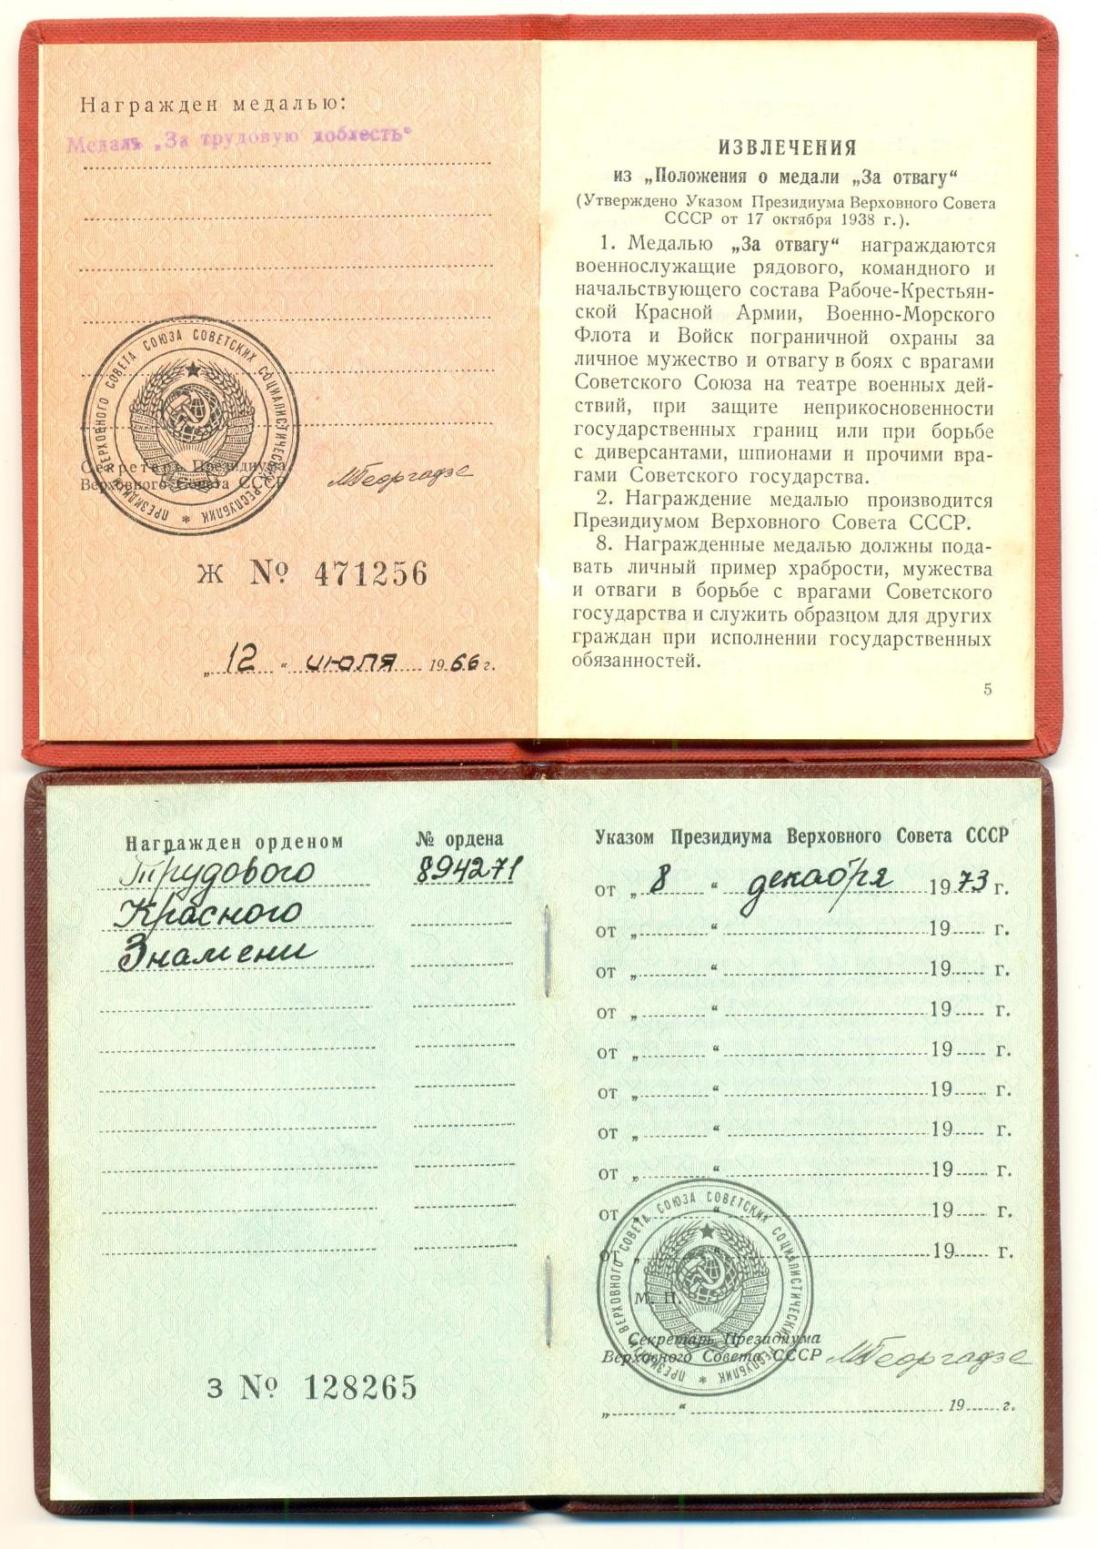 Награжден медалью:
Медаль „За трудовую доблесть“
ПРЕЗИДИУМ ВЕРХОВНОГО СОВЕТА СОЮЗА СОВЕТСКИХ СОЦИАЛИСТИЧЕСКИХ РЕСПУБЛИК *
Секретарь Президиума
Верховного Совета СССР
МГеоргадзе
Ж № 471256
„ 12 “ июля 1966 г.
ИЗВЛЕЧЕНИЯ
из „Положения о медали „За отвагу“
(Утверждено Указом Президиума Верховного Совета
СССР от 17 октября 1938 г.).
1. Медалью „За отвагу“ награждаются
военнослужащие рядового, командного и
начальствующего состава Рабоче-Крестьян-
ской Красной Армии, Военно-Морского
Флота и Войск пограничной охраны за
личное мужество и отвагу в боях с врагами
Советского Союза на театре военных дей-
ствий, при защите неприкосновенности
государственных границ или при борьбе
с диверсантами, шпионами и прочими вра-
гами Советского государства.
2. Награждение медалью производится
Президиумом Верховного Совета СССР.
8. Награжденные медалью должны пода-
вать личный пример храбрости, мужества
и отваги в борьбе с врагами Советского
государства и служить образцом для других
граждан при исполнении государственных
обязанностей.
5
Награжден орденом № ордена
Трудового 894271
Красного
Знамени
З № 128265
Указом Президиума Верховного Совета СССР
от „ 8 “ декабря 1973 г.
от „ “ 19 г.
от „ “ 19 г.
от „ “ 19 г.
от „ “ 19 г.
от „ “ 19 г.
от „ “ 19 г.
от „ “ 19 г.
от „ “ 19 г.
от „ “ 19 г.
ПРЕЗИДИУМ ВЕРХОВНОГО СОВЕТА СОЮЗА СОВЕТСКИХ СОЦИАЛИСТИЧЕСКИХ РЕСПУБЛИК *
М. П.
Секретарь Президиума
Верховного Совета СССР
МГеоргадзе
„ “ 19 г.